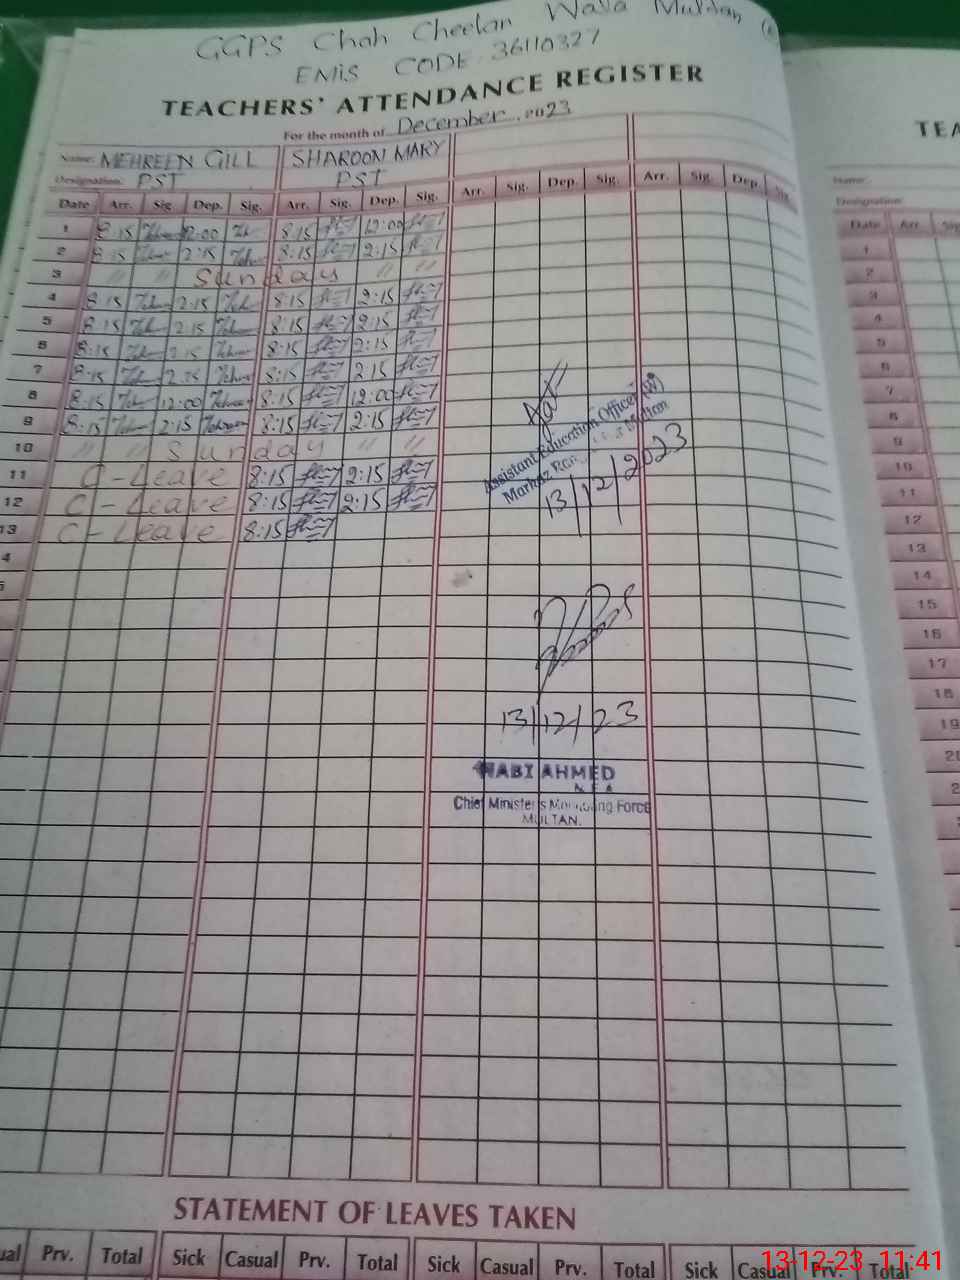 GGPS Chah Cheelan Wala Multan
EMIS CODE 36110327
TEACHERS' ATTENDANCE REGISTER
For the month of December, 2023
Name: MEHREEN GILL SHAROON MARY
Designation: PST PST
Date Arr. Sig. Dep. Sig. Arr. Sig. Dep. Sig. Arr. Sig. Dep. Sig. Arr. Sig. Dep. Sig.
1 8:15 12:00 8:15 12:00
2 8:15 2:15 8:15 2:15
3 " " Sunday " "
4 8:15 2:15 8:15 2:15
5 8:15 2:15 8:15 2:15
6 8:15 2:15 8:15 2:15
7 8:15 2:15 8:15 2:15
8 8:15 12:00 8:15 12:00
9 8:15 2:15 8:15 2:15
10 " " Sunday " "
11 C-Leave 8:15 2:15
12 C-Leave 8:15 2:15
13 C-Leave 8:15
4
5
Assistant Education Officer (W)
Markaz Multan
13/12/2023
13/12/23
NABI AHMED
M.E.A
Chief Minister's Monitoring Force
MULTAN.
STATEMENT OF LEAVES TAKEN
ual Prv. Total Sick Casual Prv. Total Sick Casual Prv. Total Sick Casual Prv. Total
TEA
Name:
Designation:
Date Arr. Sig
1
2
3
4
5
6
7
8
9
10
11
12
13
14
15
16
17
18
19
20
2
13-12-23 11:41